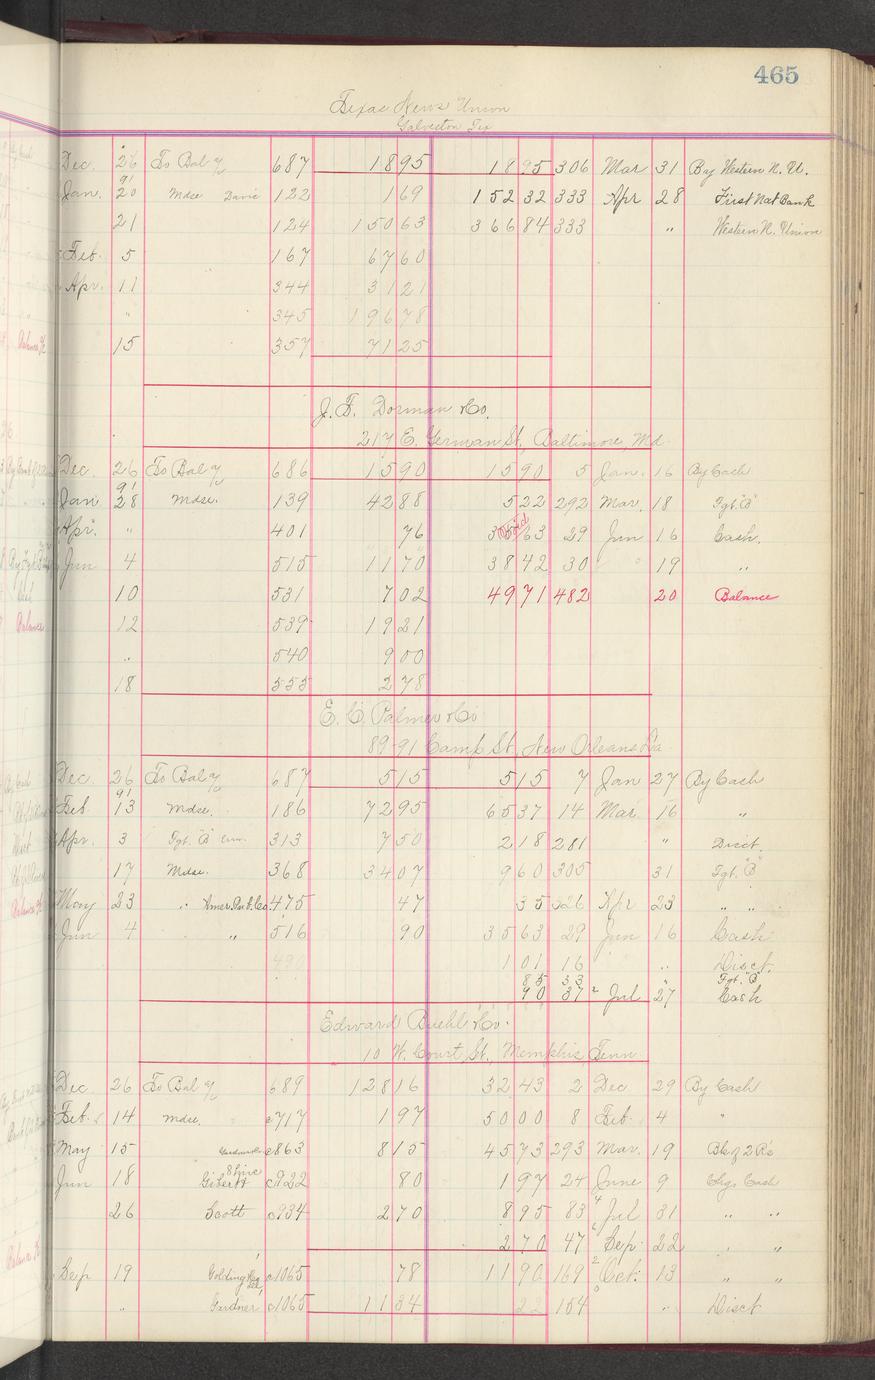 465
Texas News Union
Galveston Tex
Dec. 26 To Bal 687 1895 1895 306 Mar 31 By Western N. U.
91
Jan. 20 Mdse Davie 122 169 15232 333 Apr 28 First Nat Bank
21 124 15063 36684 333 " Western N. Union
Feb. 5 167 6760
Apr. 11 344 3121
" 345 19678
15 357 7125
J. F. Dorman & Co.
217 E. German St, Baltimore, Md.
Dec. 26 To Bal 686 1590 1590 5 Jan. 16 By Cash
91
Jan 28 Mdse. 139 4288 522 292 Mar. 18 Fgt. "B"
Apr. " 401 76 Void 63 29 Jun 16 Cash.
Jun 4 515 1170 3842 30 " 19 "
10 531 702 4971 482 20 Balance
12 539 1921
" 540 900
18 555 278
E. C. Palmer & Co
89-91 Camp St, New Orleans La.
Dec. 26 To Bal 687 515 515 7 Jan 27 By Cash
91
Feb 13 Mdse. 186 7295 6537 14 Mar. 16 "
Apr. 3 Fgt. "B" 313 750 218 281 " Disct.
17 Mdse. 368 3407 960 305 31 Fgt. "B"
May 23 " 475 47 35 326 Apr 23 " "
Jun 4 " 516 90 3563 29 Jun 16 Cash
490 101 16 " Disct.
85 33 " Fgt. "B"
90 37 Jul 27 Cash
Edward Buehl & Co.
10 W. Court St., Memphis, Tenn
Dec 26 To Bal 689 12816 3243 2 Dec 29 By Cash
Feb. 14 Mdse. c717 197 5000 8 Feb. 4 "
May 15 c863 815 4573 293 Mar. 19 Bk of 2 R's
Jun 18 c922 80 197 24 June 9 Chgs Cash
26 Scott c934 270 895 83 Jul 31 " "
270 47 Sep. 22 " "
Sep 19 Golding c1065 78 1190 169 Oct. 13 " "
" Gardner c1065 1134 22 154 " Disct